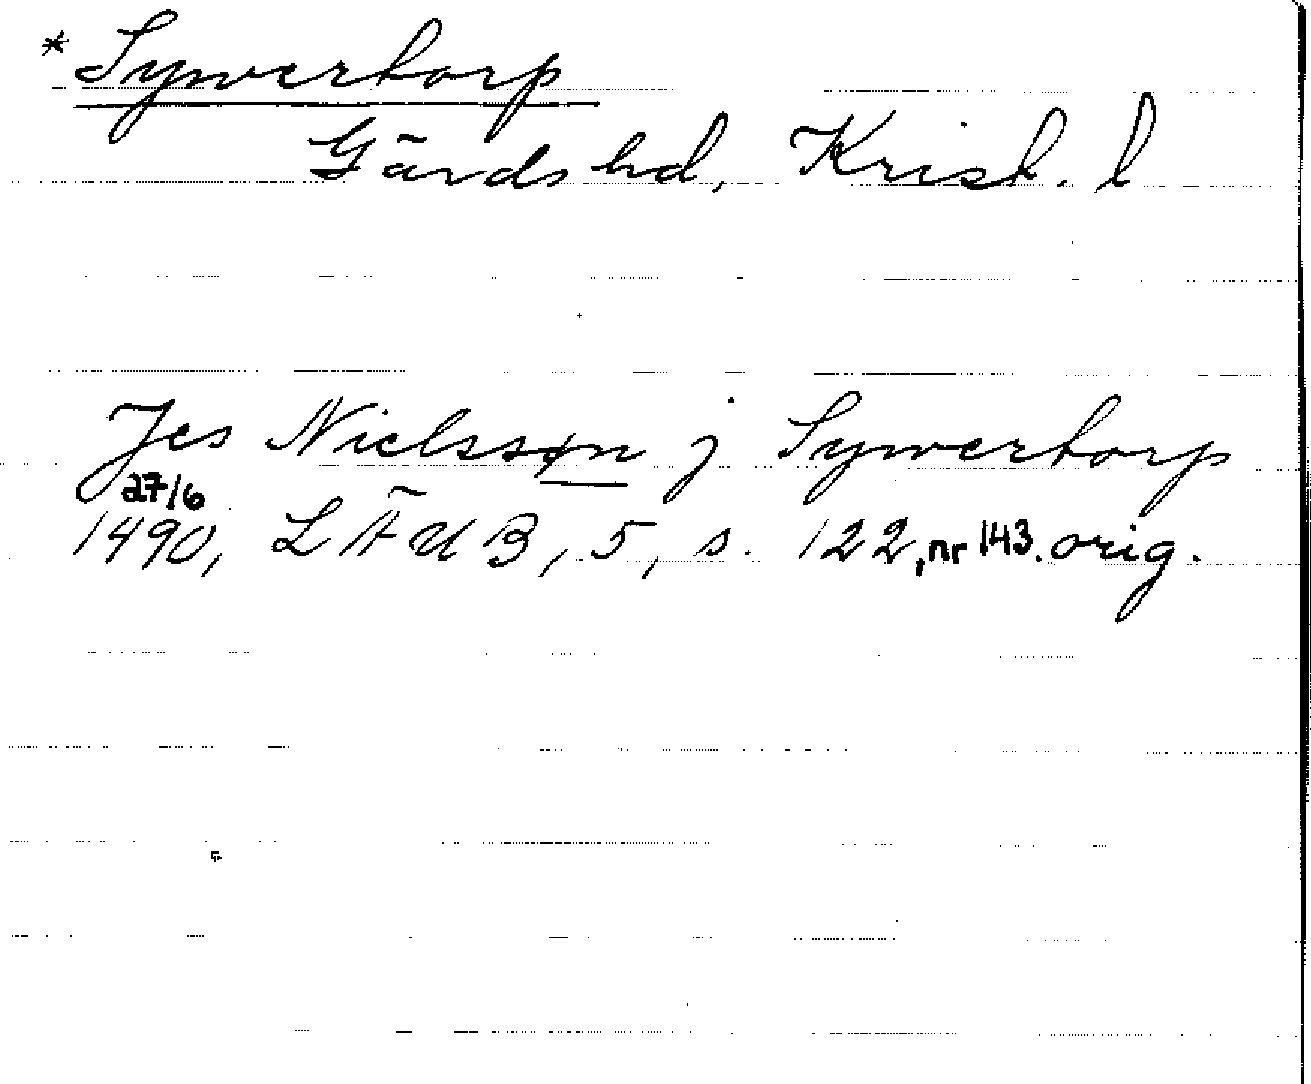 * Sywertorp
Gärds hd, Krist. l
Jes Nielssøn j Sywertorp
27/6
1490, LÄUB, 5, s. 122, nr 143. orig.